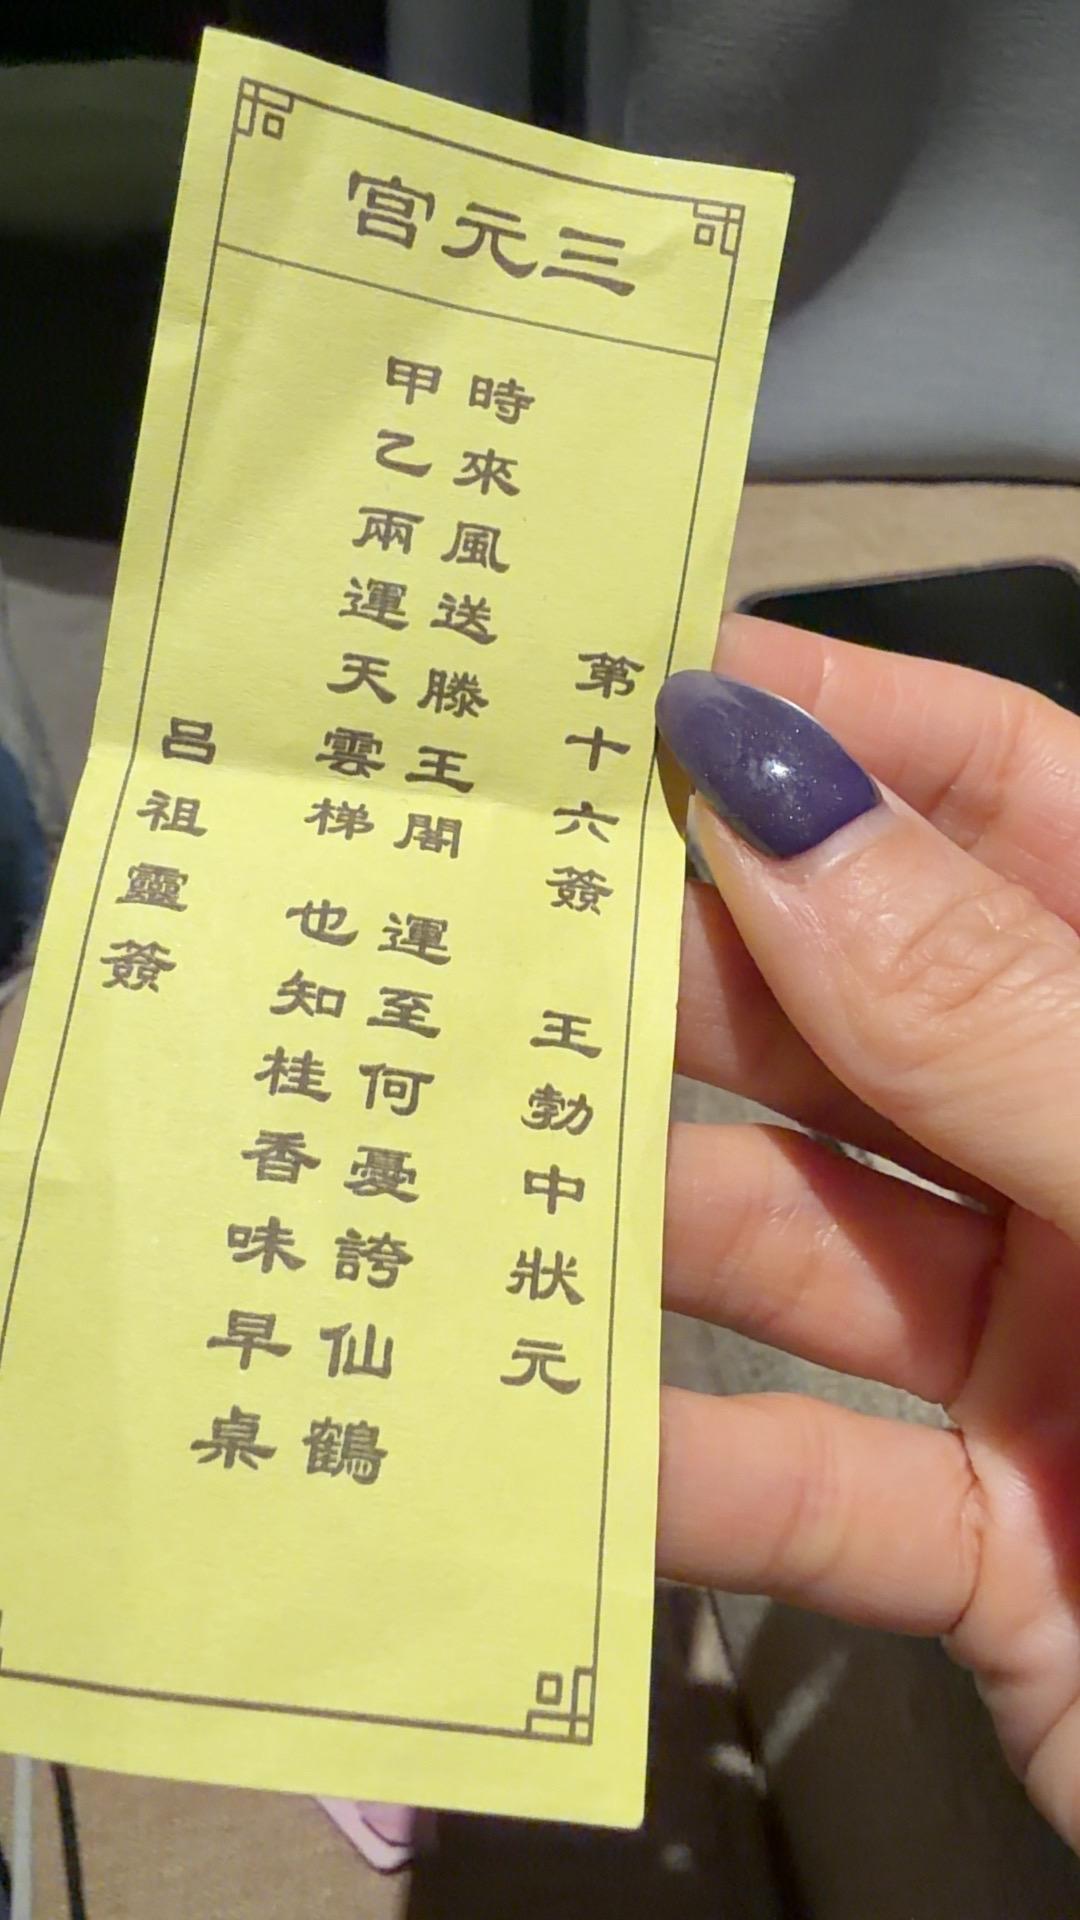 三元宮
第十六簽　王勃中狀元
時來風送滕王閣　運至何憂誇仙鶴
甲乙兩運天雲梯　也知桂香味早桌
呂祖靈簽